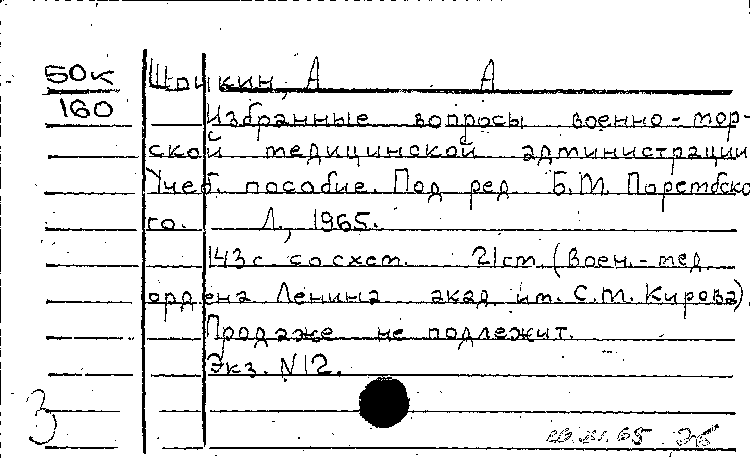 БОК Шойкин, А А
160 Избранные вопросы военно-мор-
ской медицинской администрации
Учеб. пособие. Под ред Б.М. Поретбско
го. Л., 1965.
143 с. со схем. 21 см (Воен.-мед
ордена Ленина акад им. С.М. Кирова).
Продаже не подлежит.
Экз. N12.
3